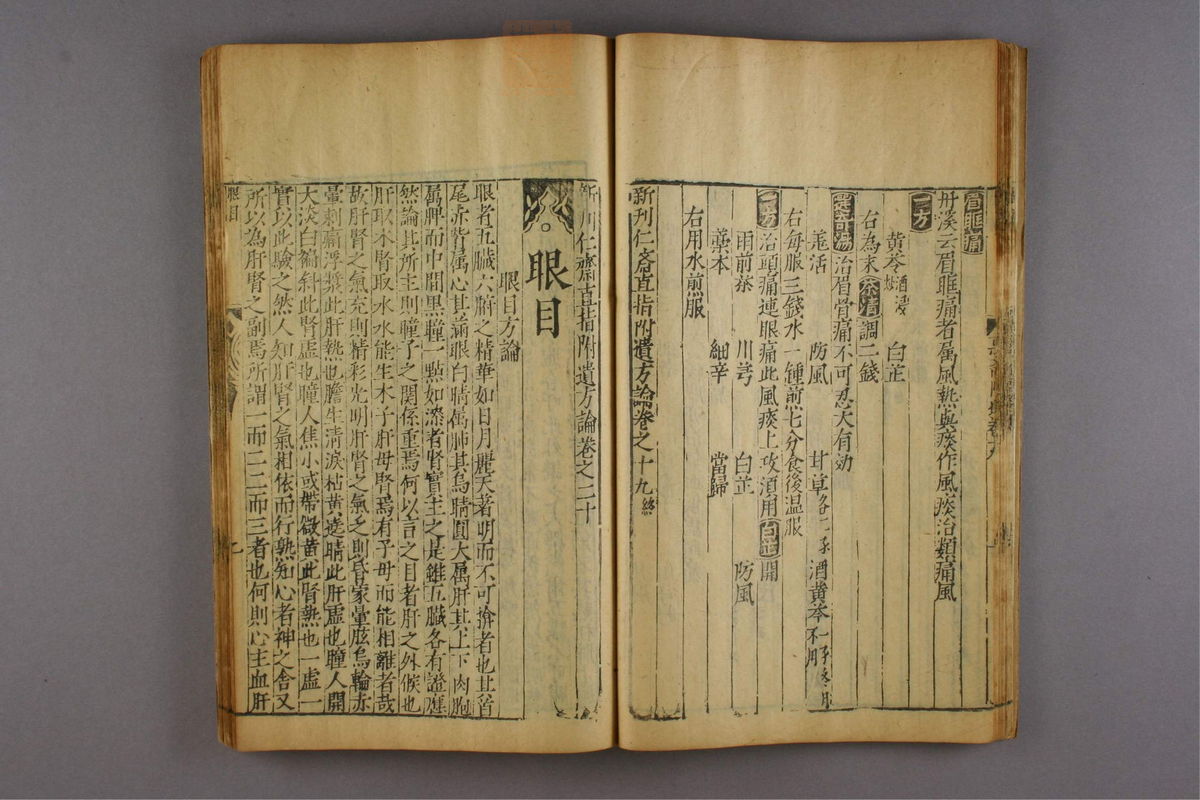 眉眶痛
丹溪云眉眶痛者屬風熱與痰作風痰治類痛風
一方
黃芩酒浸炒 白芷
右為末茶清調二錢
選奇湯治眉骨痛不可忍大有効
羗活 防風 甘草 酒黃芩
右每服三錢水一鍾煎七分食後温服
一方治頭痛連眼痛此風痰上攻湏用白芷開
雨前茶 川芎 白芷 防風
藁本 細辛 當歸
右用水煎服
新刊仁斎直指附遺方論卷之十九終
新刊仁齋直指附遺方論卷之二十
眼目
眼目方論
眼者五臟六腑之精華如日月麗天著明而不可揜者也其首
尾赤眥属心其滿眼白睛属肺其烏睛圓大属肝其上下肉胞
属脾而中間黒瞳一點如漆者腎實主之是雖五臟各有證應
然論其所主則瞳子之関係重焉何以言之目者肝之外候也
肝取木腎取水水能生木子肝母腎焉有子母而能相離者哉
故肝腎之氣充則精彩光明肝腎之氣乏則昏蒙暈眩烏輪赤
暈刺痛浮漿此肝熱也膽生清淚枯黄遶睛此肝虛也瞳人開
大淡白偏斜此腎虛也瞳人焦小或帶微黄此腎熱也一虛一
實以此驗之然人知肝腎之氣相依而行孰知心者神之舍又
所以為肝腎之副焉所謂一而二二而三者也何則心主血肝
眼目